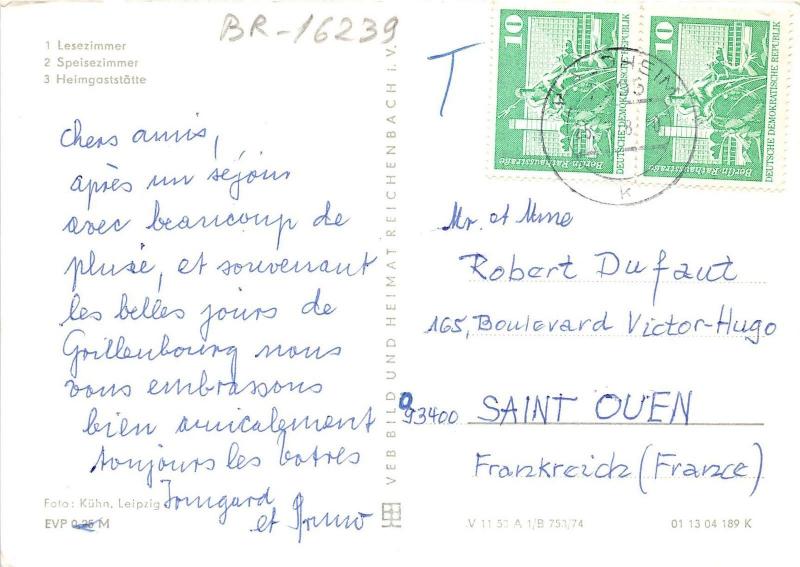 BR-16239
1 Lesezimmer
2 Speisezimmer
3 Heimgaststätte
chers amis,
après un séjour
avec beaucoup de
pluie, et souvenant
les belles jours de
Grillenbourg nous
vous embrassons
bien amicalement
toujours les votres
Irmgard
et Bruno
Foto: Kühn, Leipzig
EVP 0,25 M
VEB BILD UND HEIMAT REICHENBACH i. V.
T
10
Berlin Rathausstraße
DEUTSCHE DEMOKRATISCHE REPUBLIK
10
Berlin Rathausstraße
DEUTSCHE DEMOKRATISCHE REPUBLIK
K
Mr. et Mme
Robert Dufaut
165, Boulevard Victor-Hugo
93400 SAINT OUEN
Frankreich (France)
V 11 50 A 1/B 753/74
01 13 04 189 K